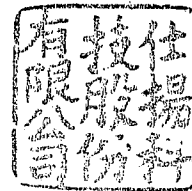 仕揚科
技股份
有限公司